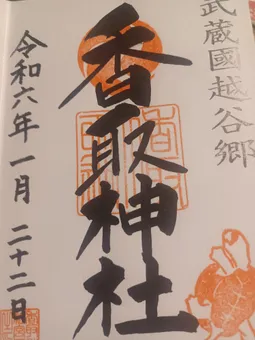 武蔵國越谷郷
香取神社
令和六年一月二十二日